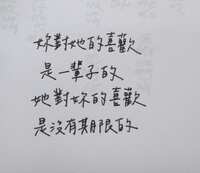 妳對她的喜歡
是一輩子的
她對妳的喜歡
是沒有期限的